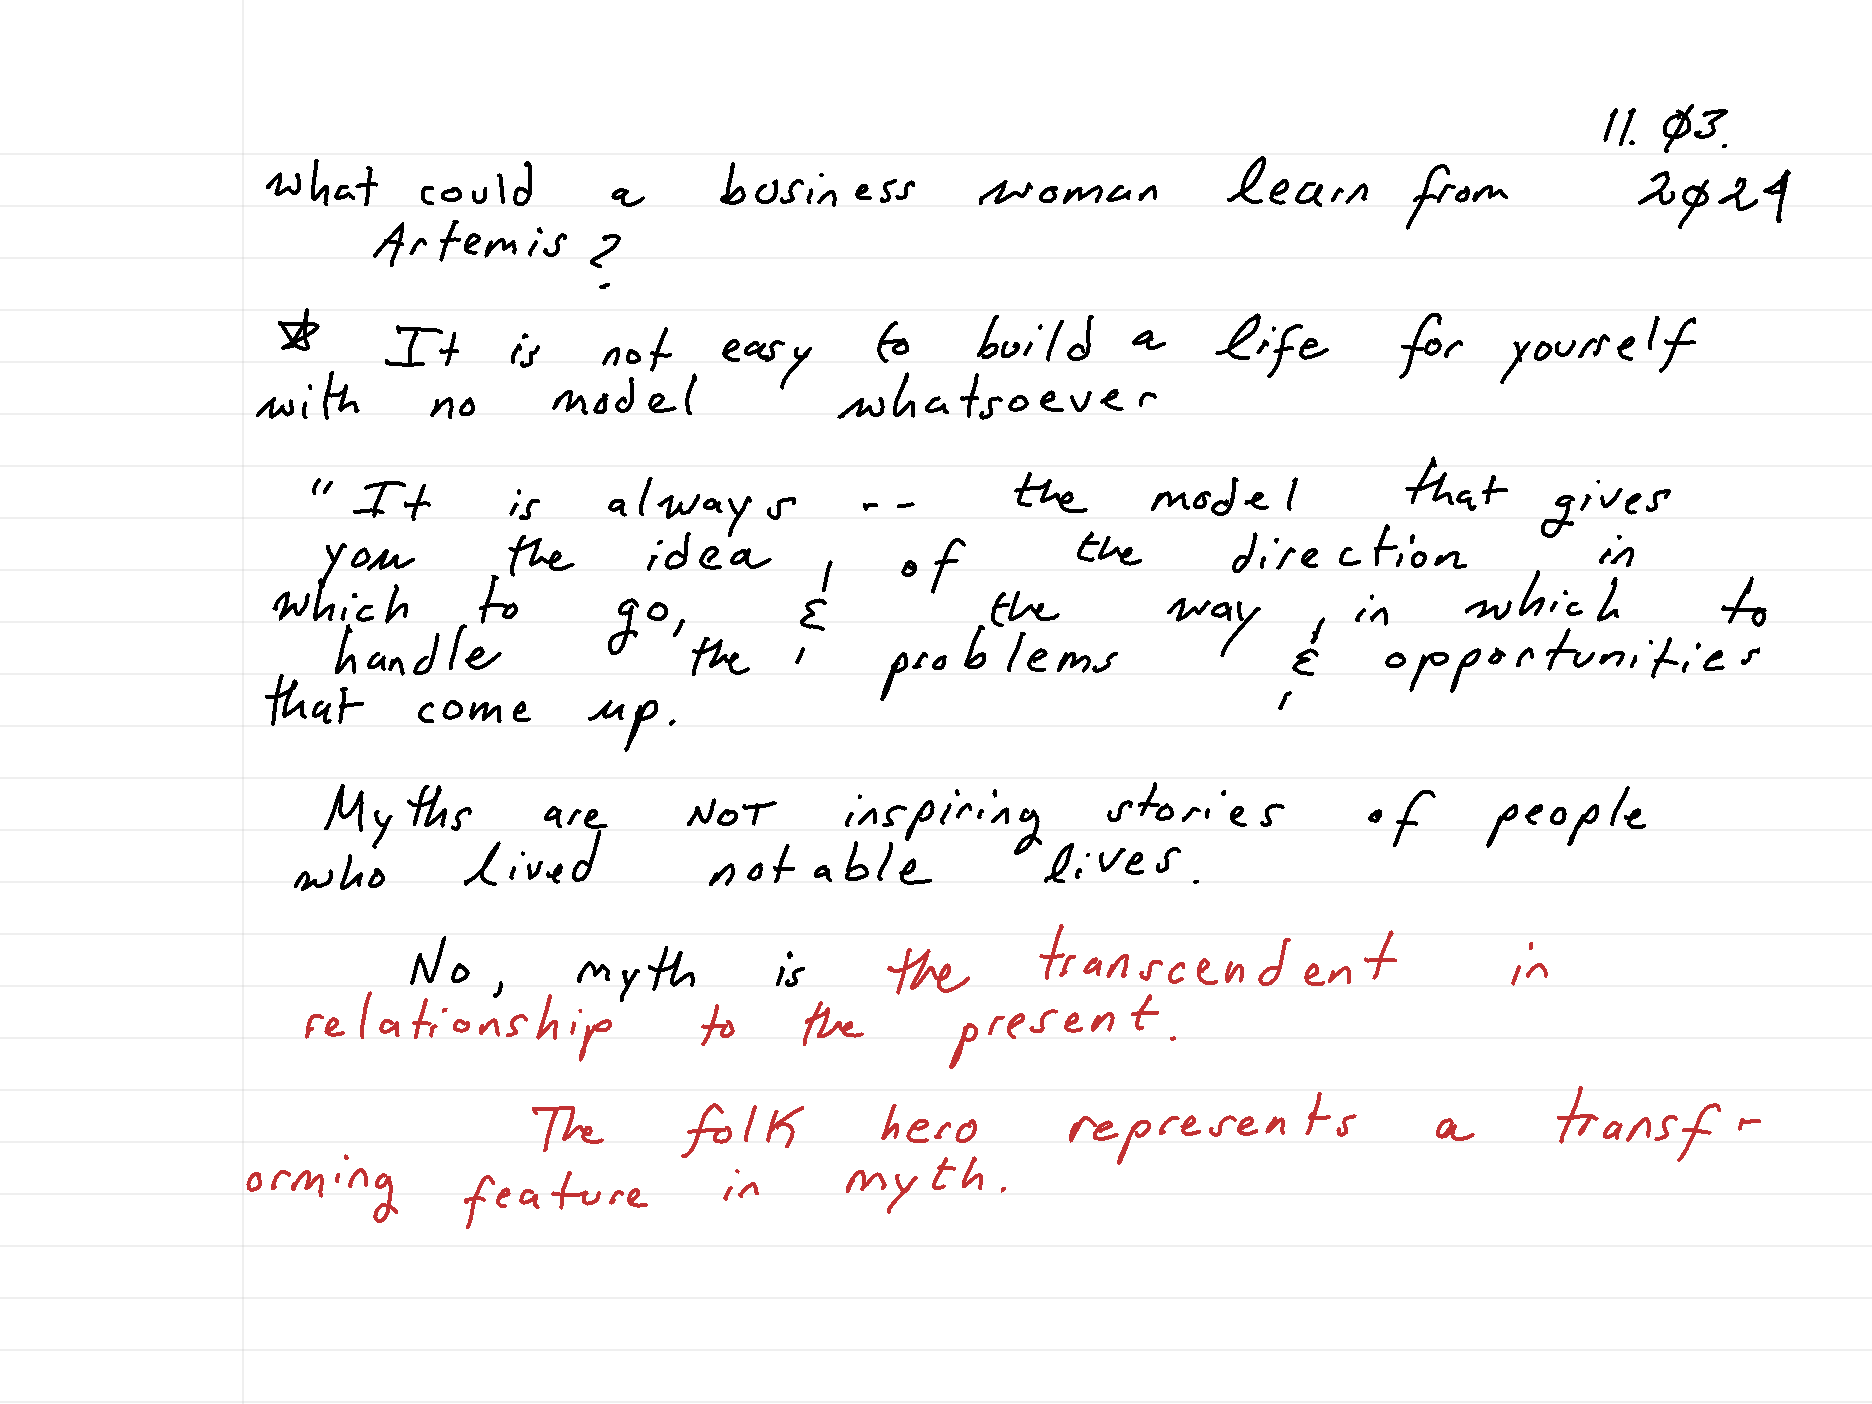 11. Ø3.
what could a business woman learn from 2Ø24
Artemis?
☆ It is not easy to build a life for yourself
with no model whatsoever
"It is always -- the model that gives
you the idea, of the direction in
which to go, & the way, in which to
handle the problems & opportunities
that come up.
Myths are NOT inspiring stories of people
who lived notable lives.
No, myth is the transcendent in
relationship to the present.
The folk hero represents a transf-
orming feature in myth.